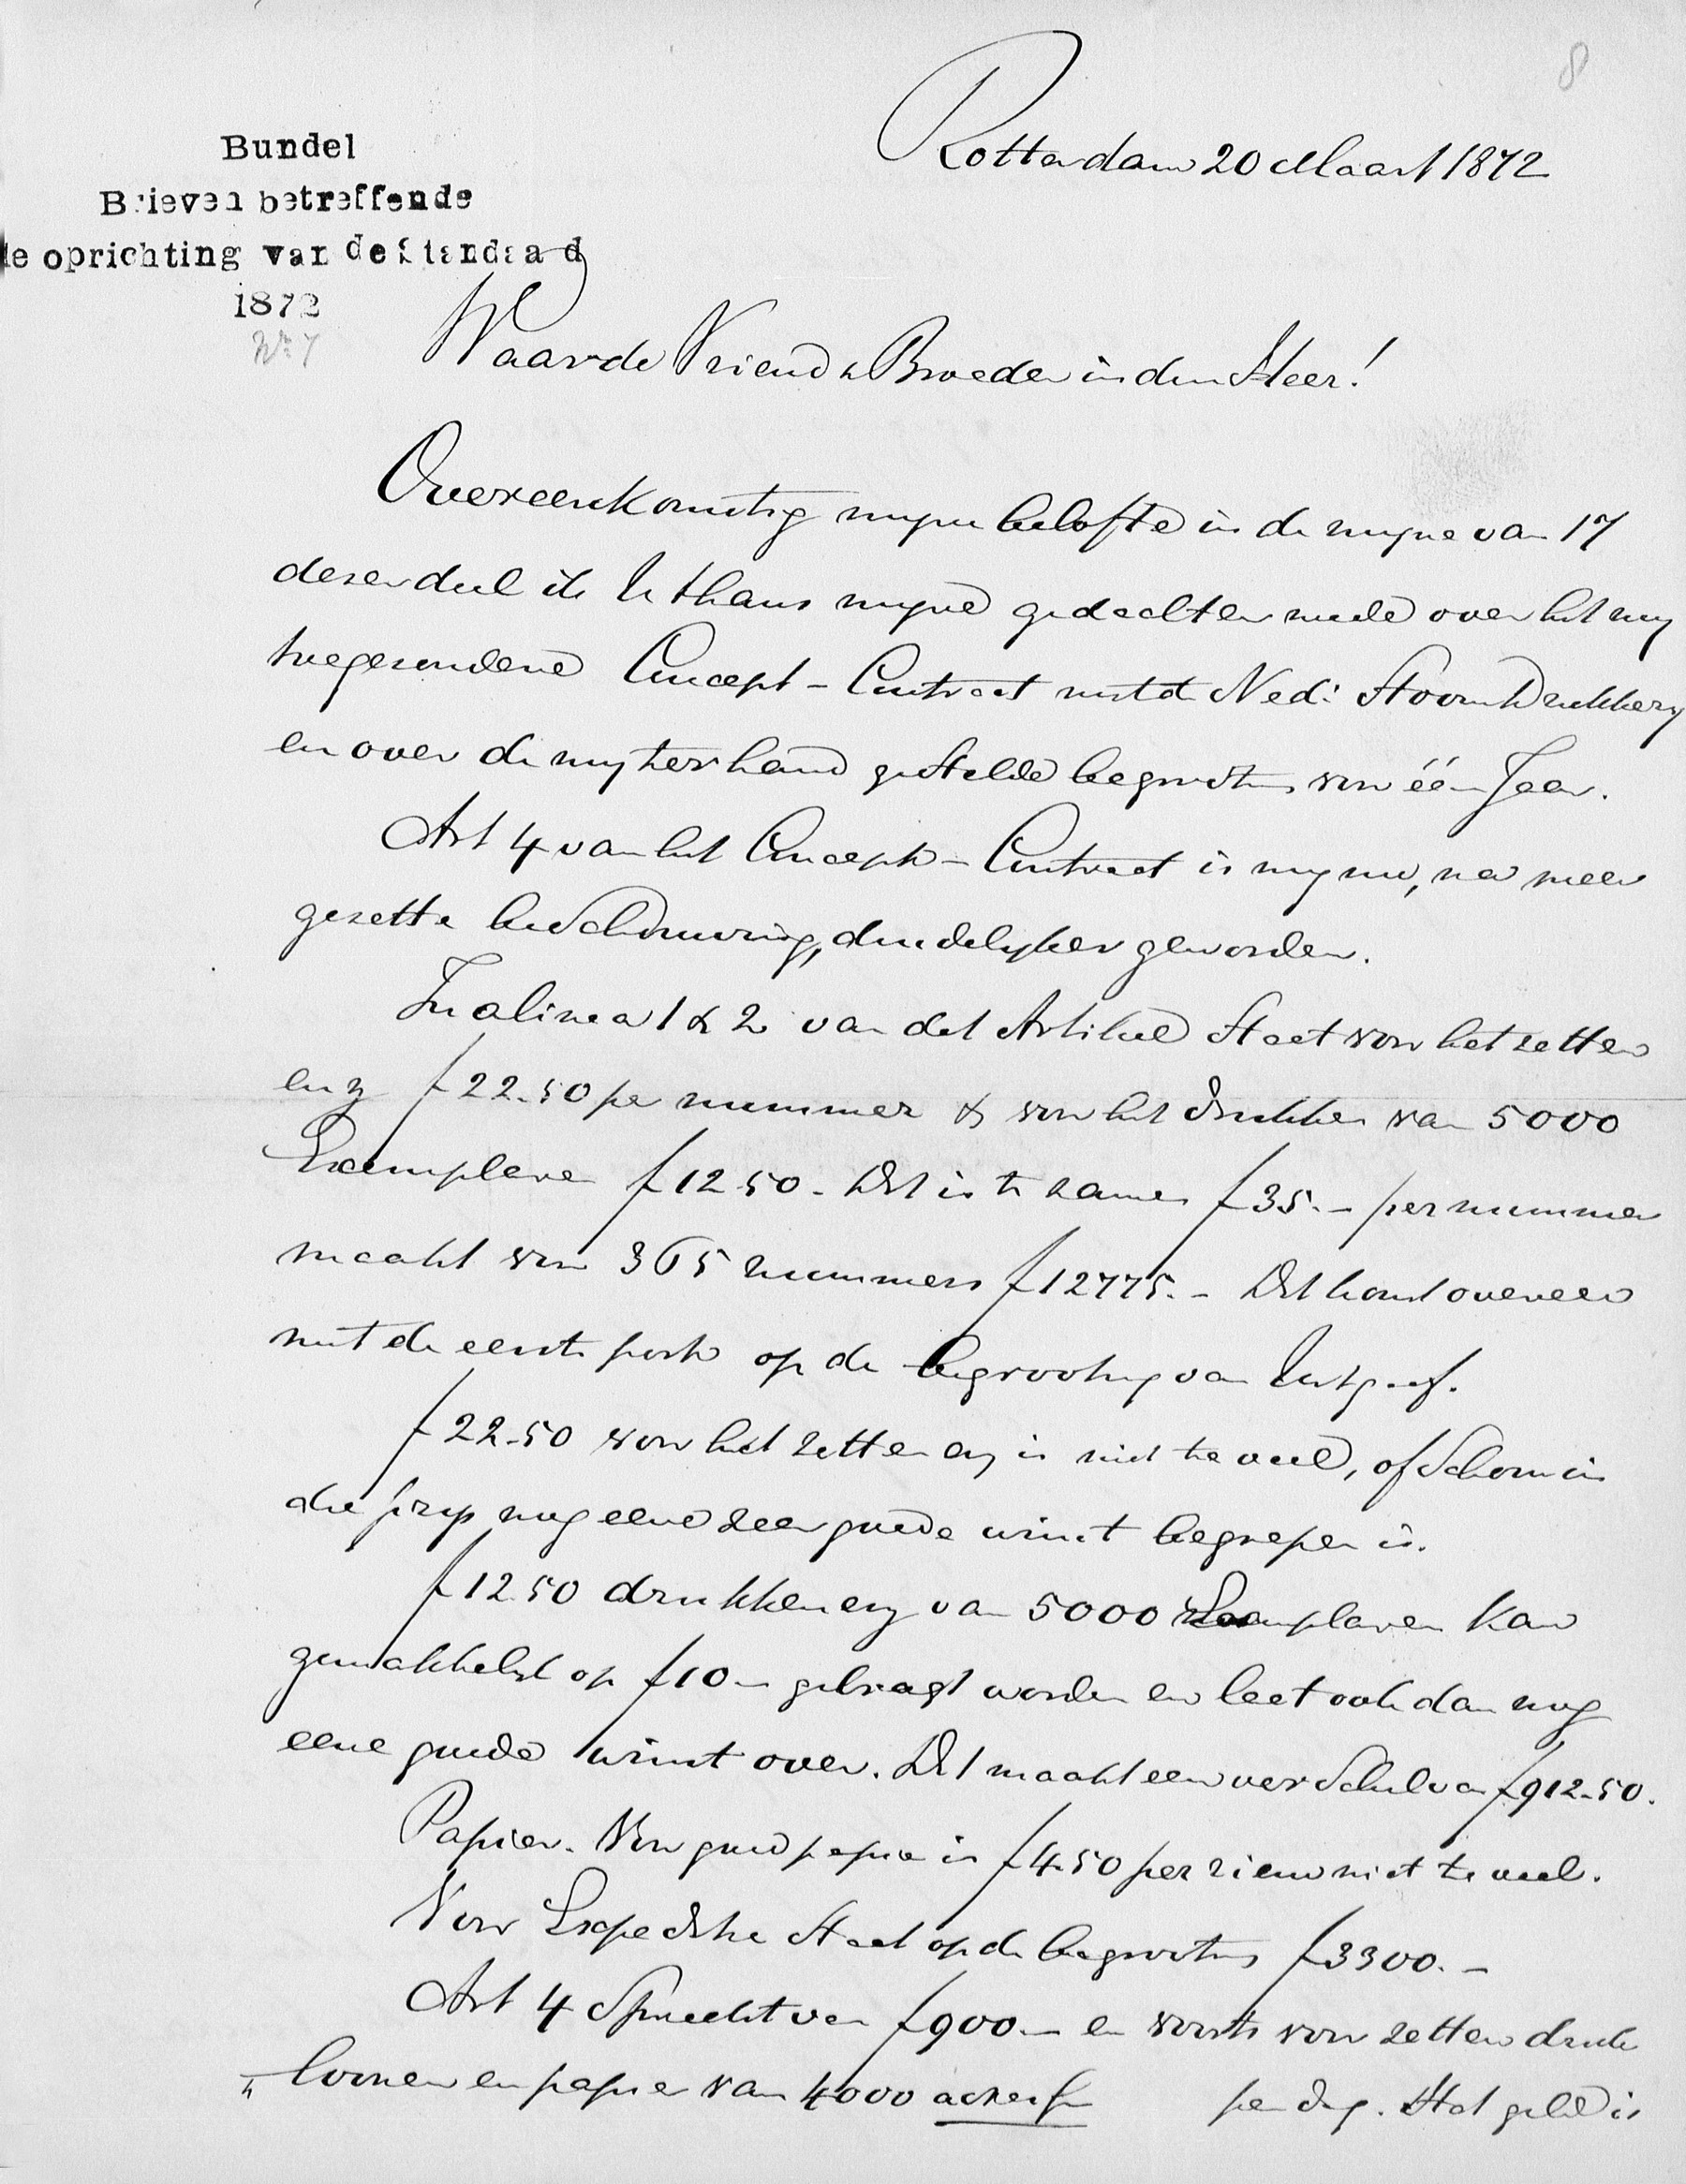 8
Rotterdam 20 Maart 1872
Bundel
Brieven betreffende
de oprichting van de Standaard
1872
No 7
Waarde Vriend & Broeder in den Heer!
Overeenkomstig mijne belofte in de mijne van 17
dezer deel ik U thans mijne gedachten mede over het mij
toegezondene Concept-Contract met de Ned: StoomDrukkerij
en over de mij ter hand gestelde begrooting voor één Jaar.
Art 4 van het Concept-Contract is mij nu, na meer
gezette beschouwing, duidelijker geworden.
In alinea 1 & 2 van dat Artikel staat voor het zetten
enz f 22.50 per nummer & voor het drukken van 5000
Exemplaren f 12.50. Dit is te zamen f 35.- per nummer
maakt voor 365 nummers f 12775.- Dit komt overeen
met de eerste post op de begrooting van Uitgaaf.
f 22.50 voor het zetten enz is niet te veel, ofschoon in
die prijs nog eene zeer goede winst begrepen is.
f 12.50 drukken enz van 5000 Exemplaren kan
gemakkelijk op f 10.- gebragt worden en laat ook dan nog
eene goede winst over. Dit maakt een verschil van f 912.50.
Papier. Voor goed papier is f 4.50 per riem niet te veel.
Voor Expeditie staat op de begrooting f 3300.-
Art 4 spreekt van f 900.- en voorts voor zetten druk
" loonen en papier van 4000 per dag. Het geld is